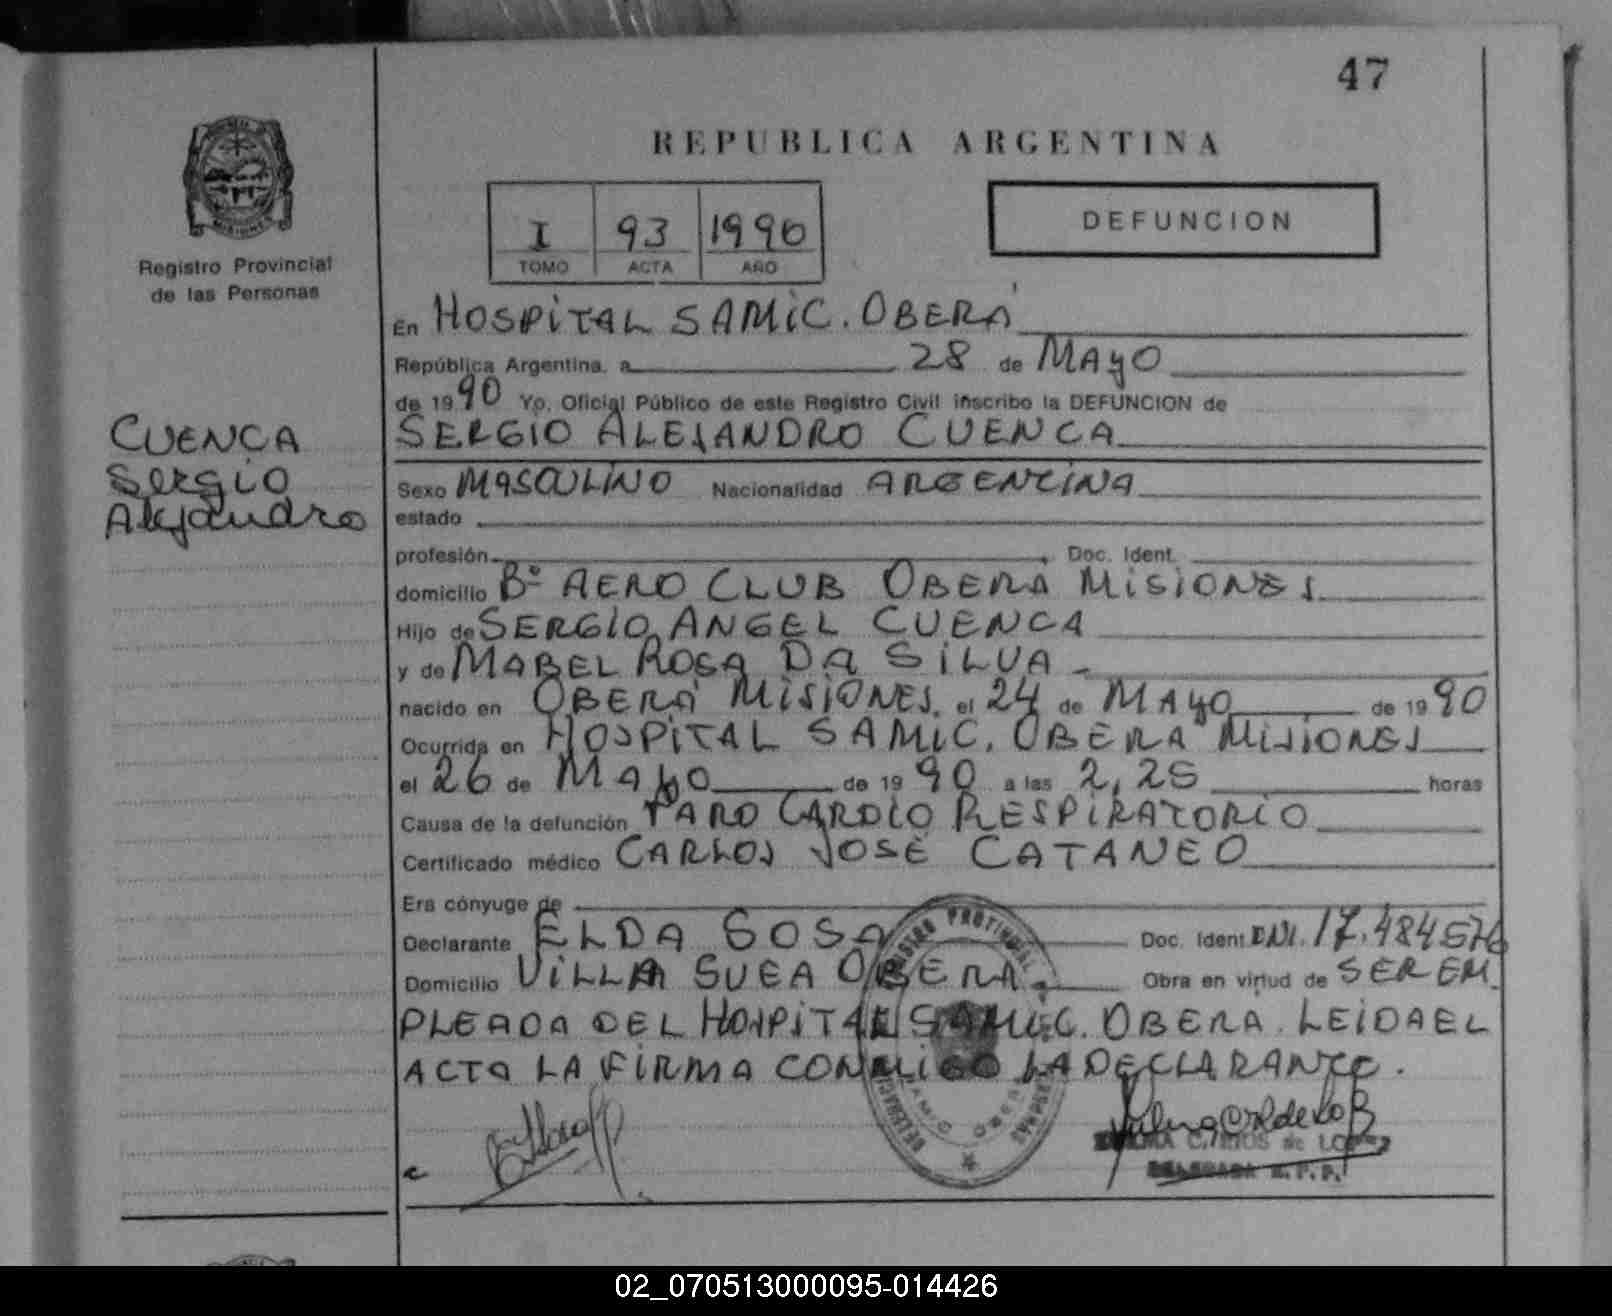 47
REPUBLICA ARGENTINA
I 93 1990
TOMO ACTA AÑO
DEFUNCION
MISIONES
Registro Provincial
de las Personas
CUENCA
Sergio
Alejandro
En HOSPITAL SAMIC. OBERÁ
República Argentina, a 28 de MAYO
de 1990 Yo, Oficial Público de este Registro Civil inscribo la DEFUNCION de
SERGIO ALEJANDRO CUENCA
Sexo MASCULINO Nacionalidad ARGENTINA
estado
profesión Doc. Ident.
domicilio Bº AERO CLUB OBERA MISIONES
Hijo de SERGIO ANGEL CUENCA
y de MABEL ROSA DA SILVA
nacido en OBERÁ MISIONES, el 24 de MAYO de 1990
Ocurrida en HOSPITAL SAMIC. OBERA MISIONES
el 26 de MAYO de 1990 a las 2,25 horas
Causa de la defunción PARO CARDIO RESPIRATORIO
Certificado médico CARLOS JOSÉ CATANEO
Era cónyuge de
Declarante ELDA SOSA Doc. Ident DNI. 17.484576
Domicilio VILLA SUEA OBERA Obra en virtud de SER EM
PLEADA DEL HOSPITAL SAMIC. OBERA. LEIDA EL
ACTA LA FIRMA CONMIGO LA DECLARANTE.
REGISTRO PROVINCIAL DE LAS PERSONAS
SAMIC OBERA
DELEGADA R.P.P.
02_070513000095-014426